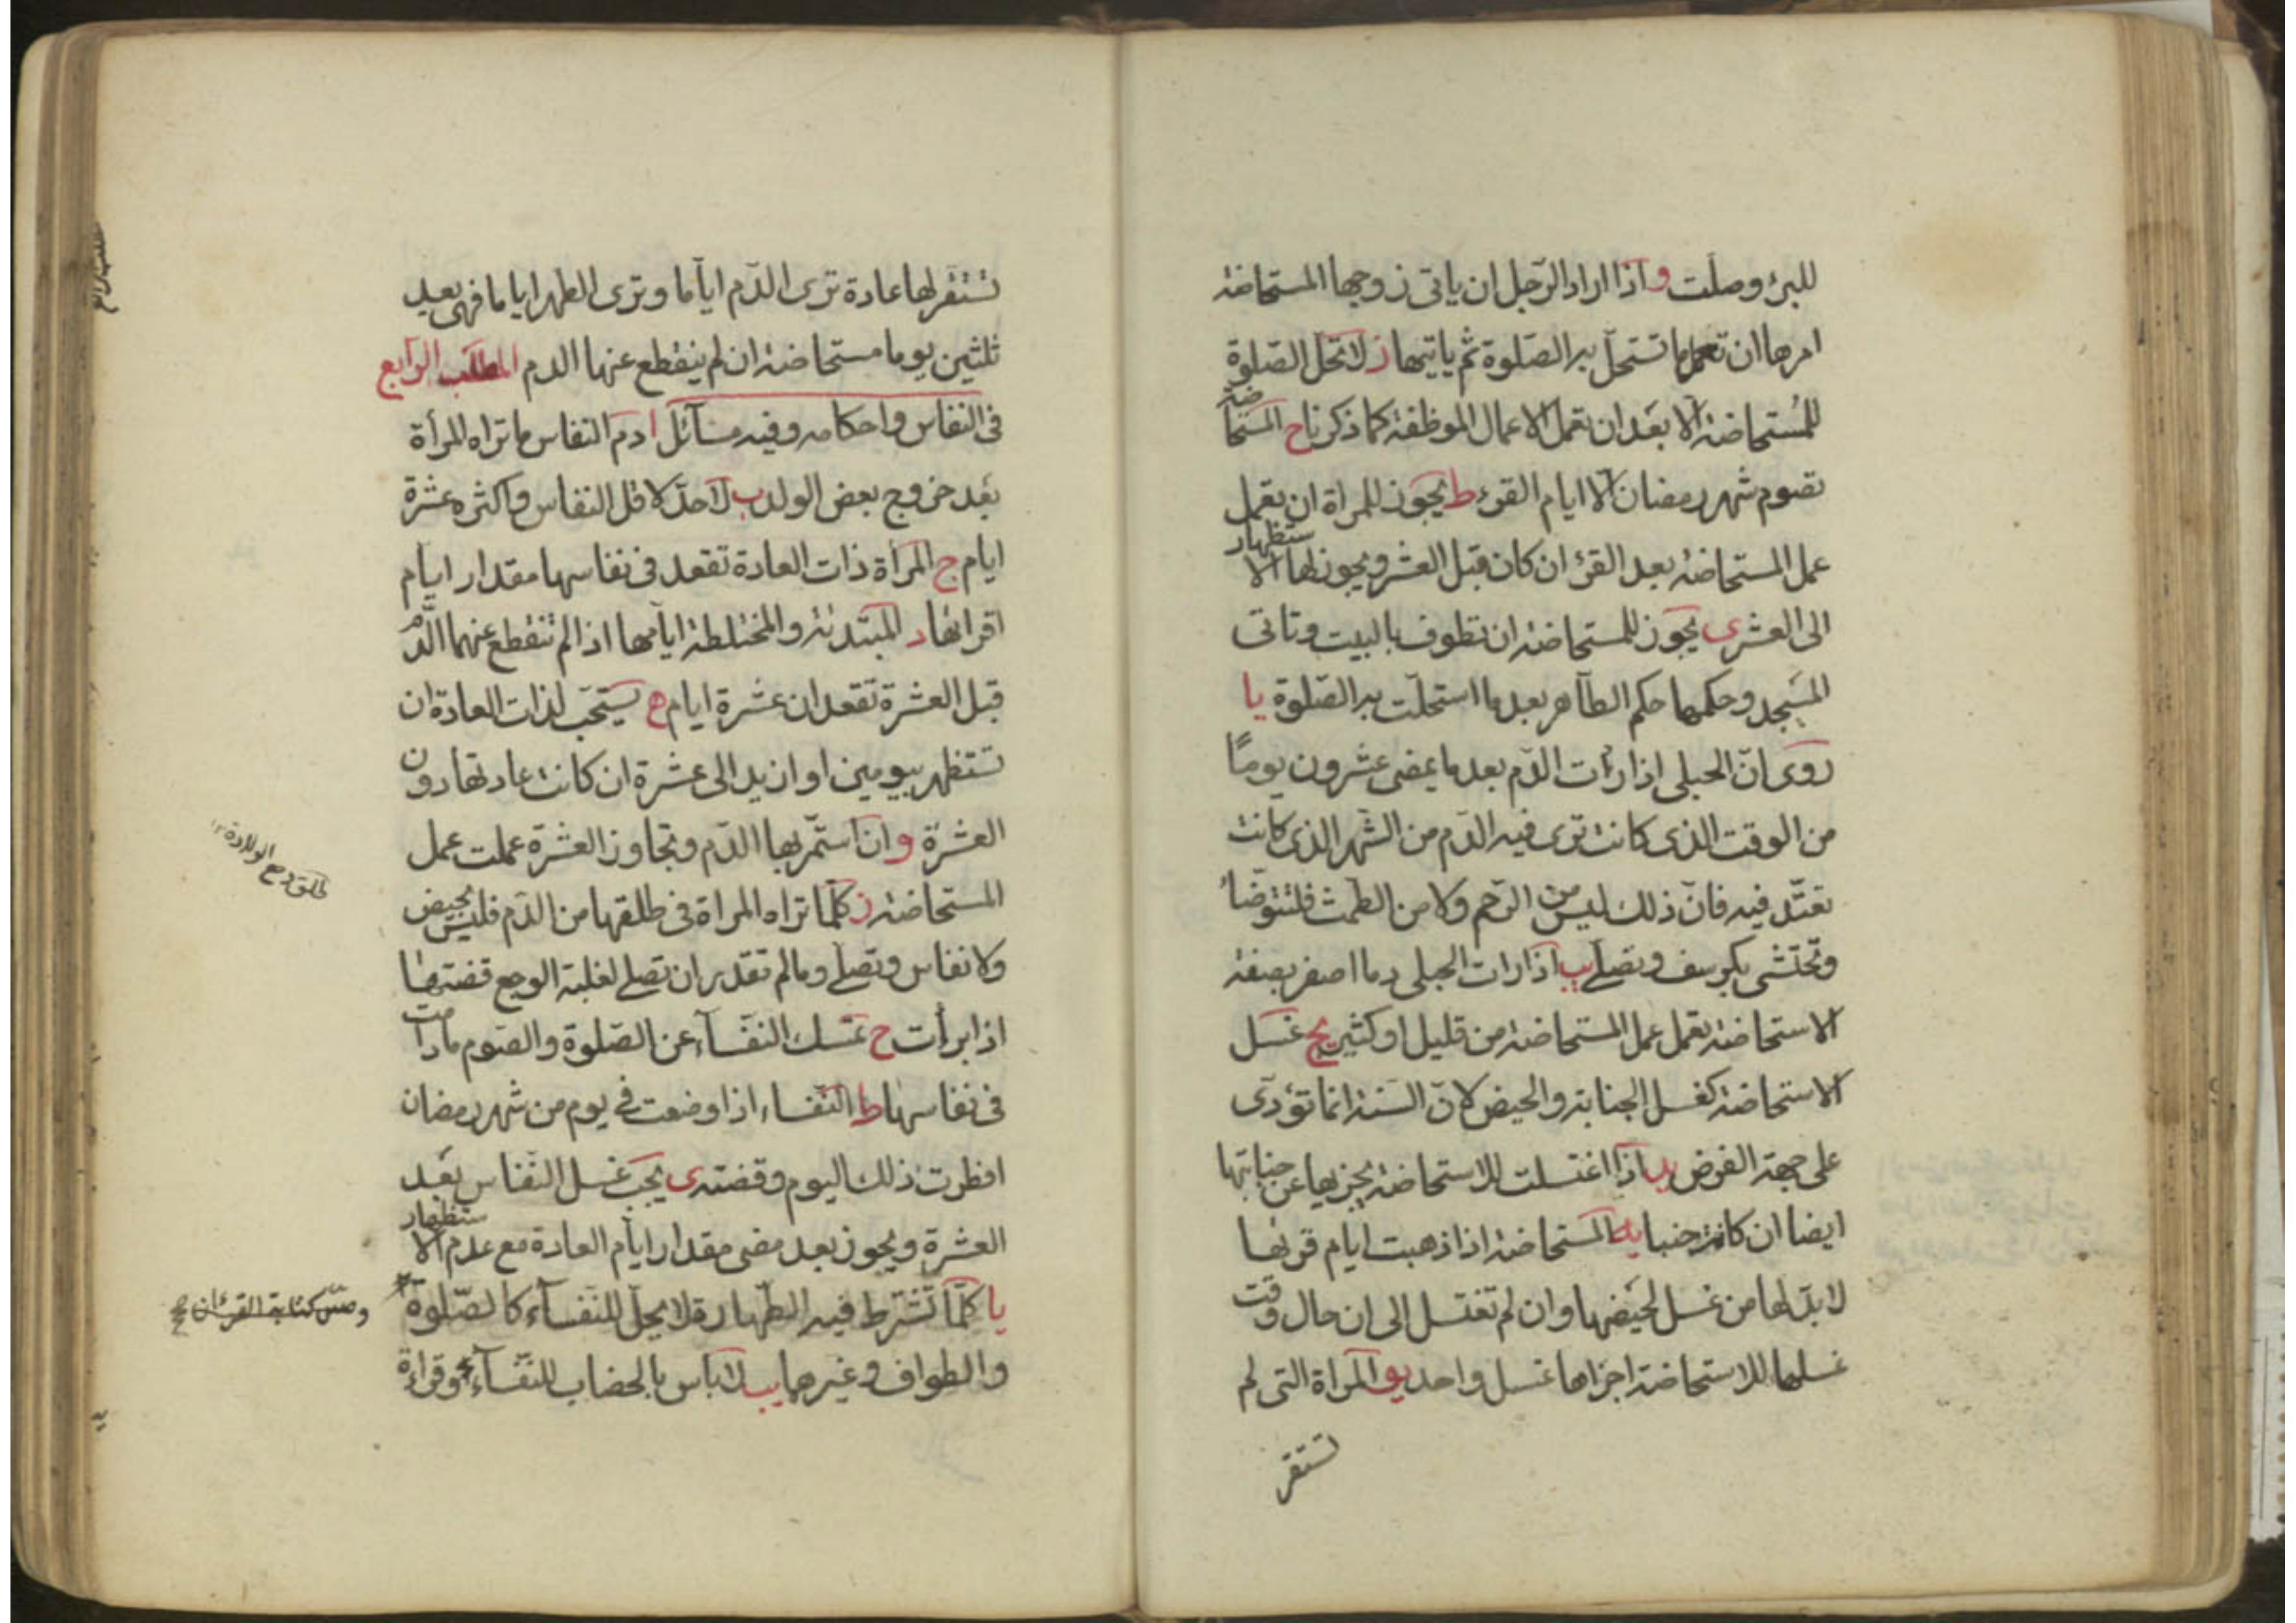 للبرئ وصلت و اذا اراد الرّجل ان ياتى زوجها المستحاضة
امرها ان تعمل ما تستحلّ به الصّلوة ثم ياتيها ز لا تحلّ الصّلوة
للمُستحاضة الّا بعد ان تعمل الاعمال الموظفة كما ذكرنا ح المستحاضة
تصوم شهر رمضان الّا ايام القرء ط يجوز للمراة ان تعمل
عمل المستحاضة بعد القرء ان كان قبل العشر و يجوز لها الاستظهار
الى العشر ى يجوز للمستحاضة ان تطوف بالبيت و تاتى
المسجد و حكمها حكم الطّاهر بعد ما استحلّت به الصّلوة يا
روى انّ الحبلى اذا رئات الدّم بعد ما يمضى عشرون يومًا
من الوقت الذى كانت ترى فيه الدّم من الشّهر الذى كانت
تعتّد فيه فانّ ذلك ليس من الرّحم ولا من الطّمث فلتتوضّأ
وتحتشى بكرسف و تصلّے يب اذا رات الحبلى دما اصفر بصفة
الاستحاضة تعمل عمل المستحاضة من قليل او كثير يج غسل
الاستحاضة كغسل الجنابة والحيض لانّ السّنة انما تؤدّى
على جهة الفرض يد اذا اغتسلت للاستحاضة يجزيها عن جنابتها
ايضا ان كانت جنبا يه المستحاضة اذا ذهبت ايام قرئها
لا بدّ لها من غسل لحيضها و ان لم تغتسل الى ان حال وقت
غسلها للاستحاضة اجزاها غسل واحد يو المراة التى لم
تستقر
تستقر لها عادة ترى الدّم ايّاما و ترى الطهر اياما فهى بعد
ثلثين يوما مستحاضة ان لم ينقطع عنها الدم المطلب الرّابع
فى النفاس و احكامه و فيه مسآئل ا دم النفاس ما تراه المرأة
بعد خروج بعض الولد ب لا حدّ لاقل النفاس و اكثره عشرة
ايام ج المرأة ذات العادة تقعد فى نفاسها مقدار ايام
اقرائها د المبتدئة و المختلطة ايامها اذا لم تنقطع عنهما الدّم
قبل العشرة تقعدان عشرة ايام ه يستحّب لذات العادة ان
تستظهر بيومين او ازيد الى عشرة ان كانت عادتها دون
العشرة و ان استمّر بها الدّم و تجاوز العشرة عملت عمل
المستحاضة ز كلّما تراه المراة فى طلقها من الدّم فليس بحيض
ولا نفاس و تصلّے و ما لم تقدر ان تصلے لغلبة الوجع قضتها
اذا برأت ح تمسك النفسآء عن الصّلوة و الصّوم ما دامت
فى نفاسها ط النّفساء اذا وضعت فے يوم من شهر رمضان
افطرت ذلك اليوم و قضته ى يجب غسل النّفاس بعد
العشرة و يجوز بعد مضى مقدار ايّام العادة مع عدم الاستظهار
يا كلّما تشترط فيه الطّهارة لا يحلّ للنّفسآء كالصّلوة
والطواف و غيرهما يب لا باس بالخضاب للنفسآء نحو قراءة
طلق وجع الولادة ١٢
و مسّ كتابة القرءان صح